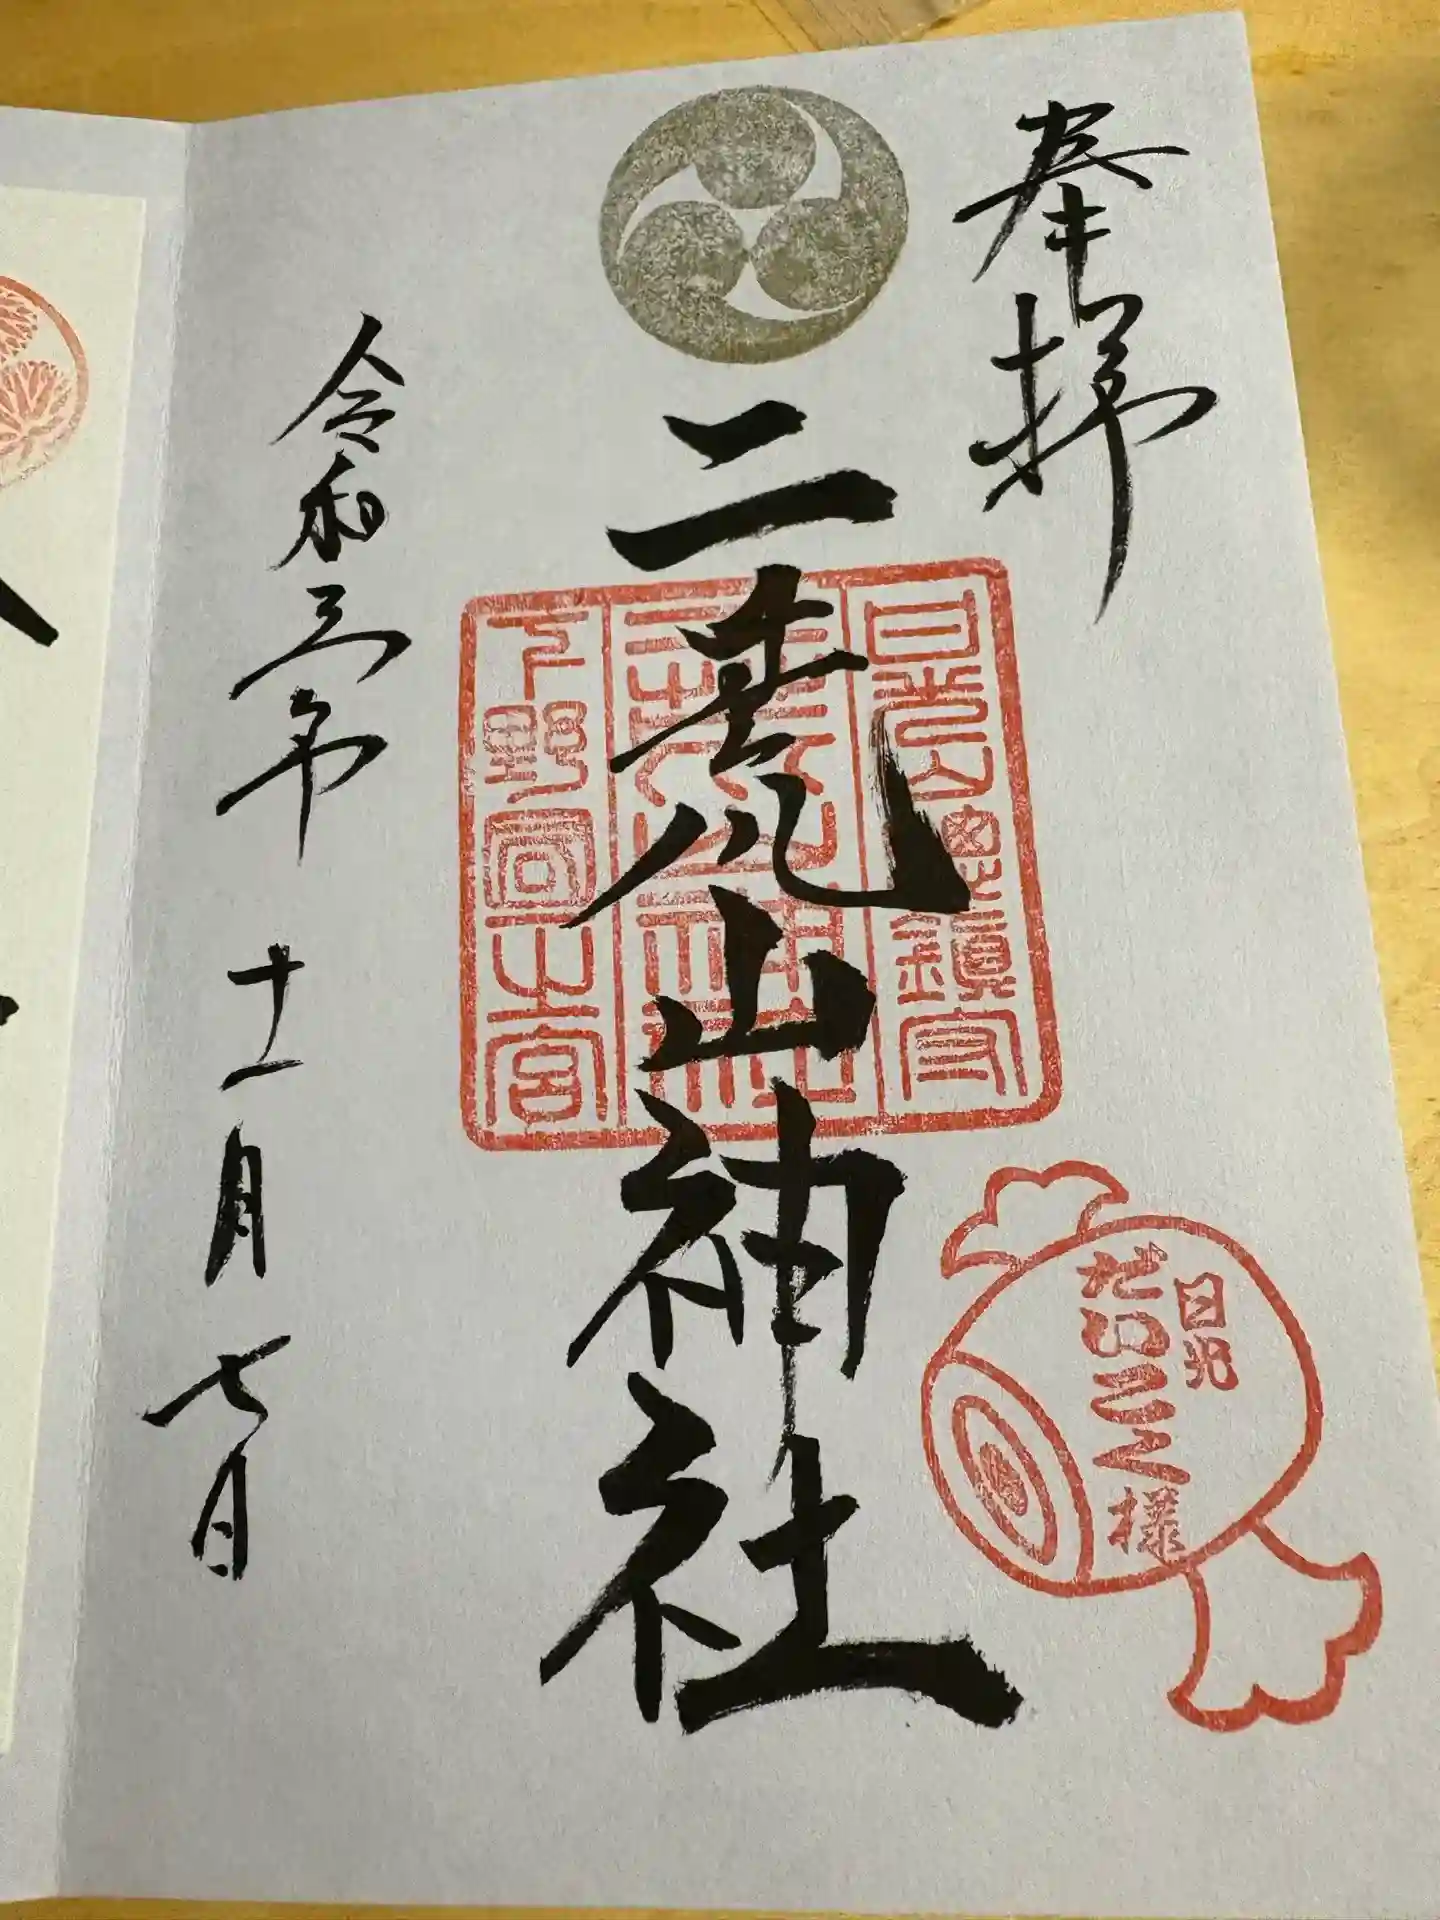 奉拝
日光山総鎮守
二荒山神社
二荒山神社
下野国一之宮
日光
だいこく様
令和三年十一月七日